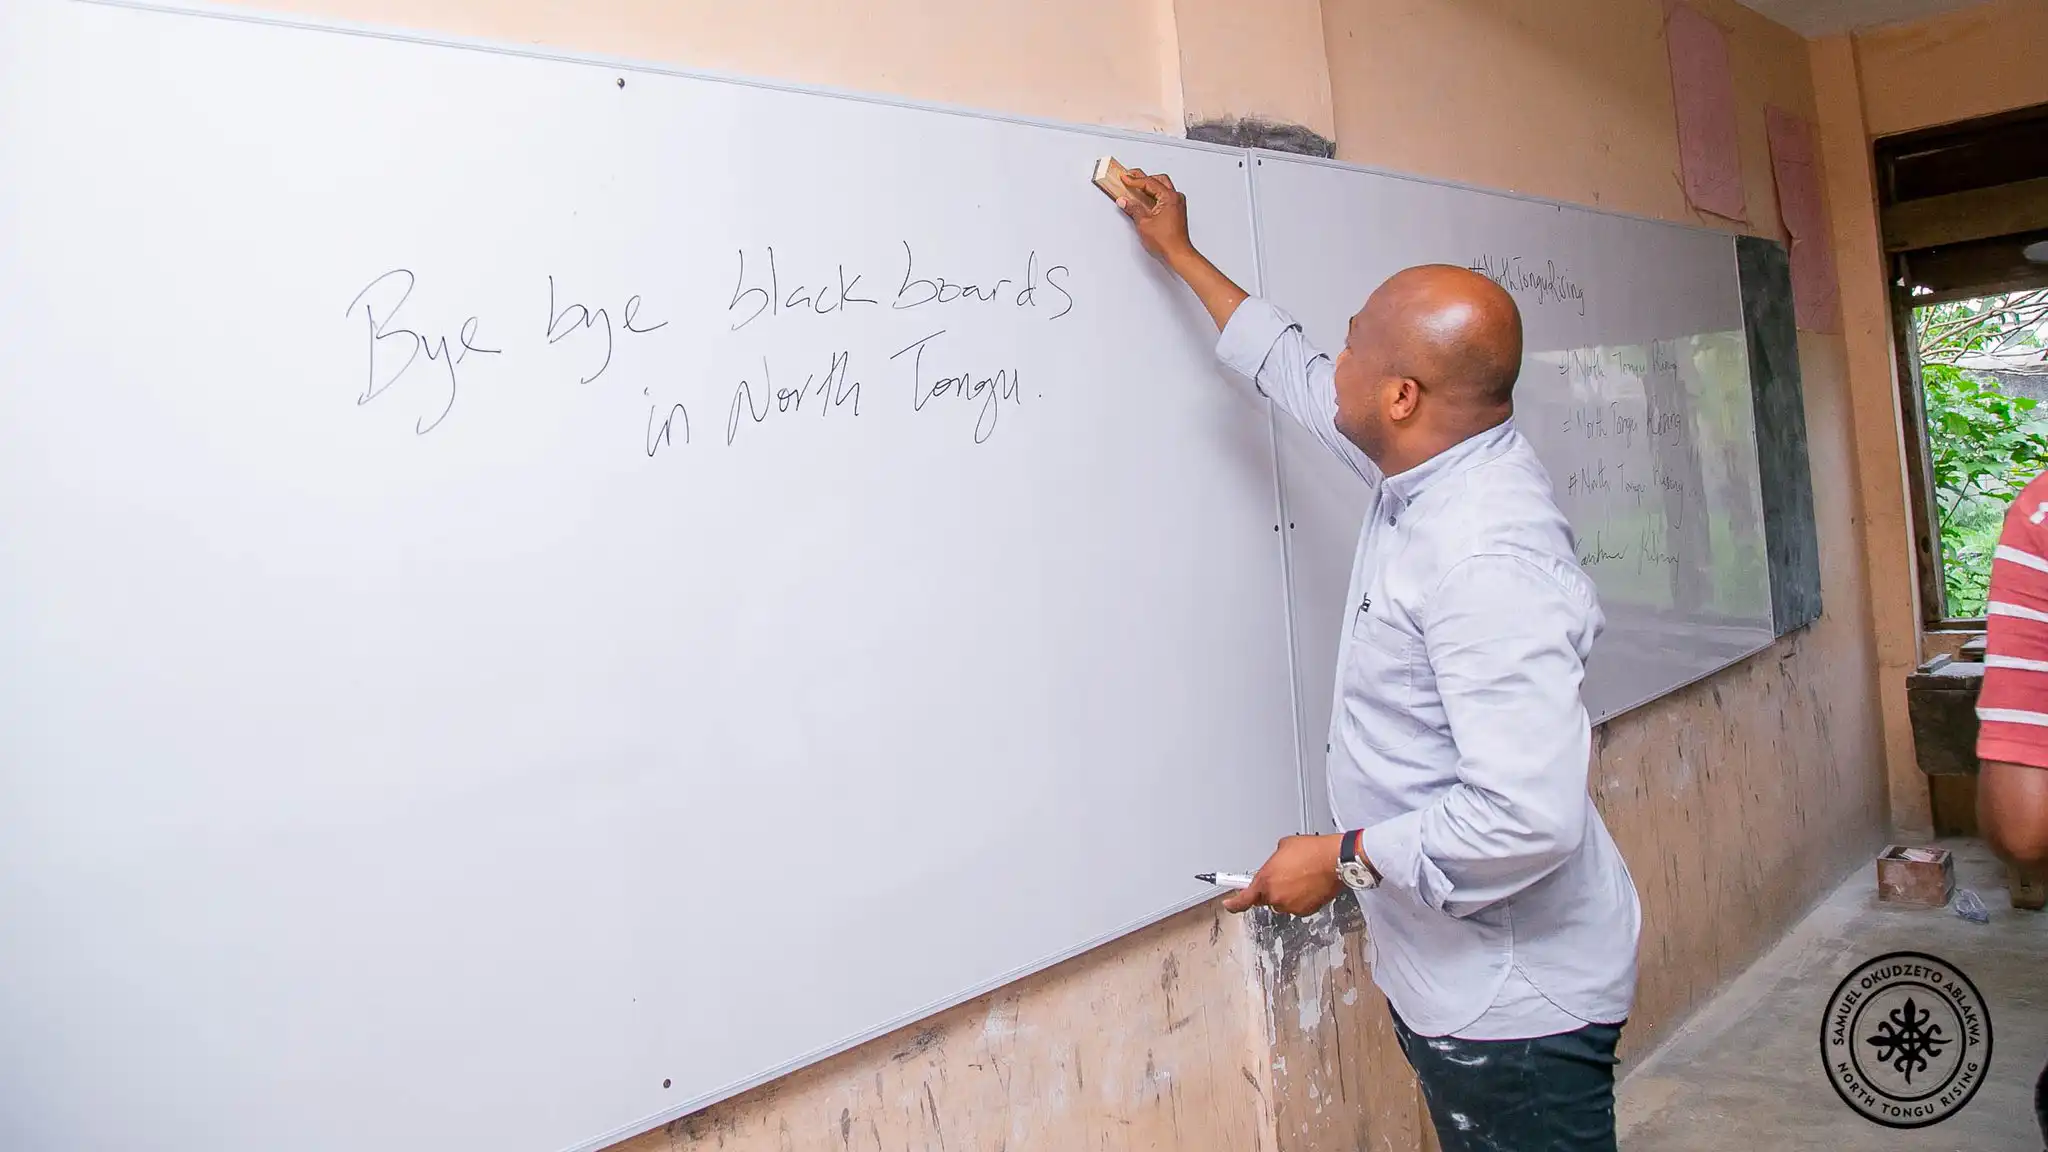 Bye bye blackboards
in North Tongu.
#NorthTonguRising
#North Tongu Rising
#North Tongu Rising
#North Tongu Rising
SAMUEL OKUDZETO ABLAKWA
NORTH TONGU RISING